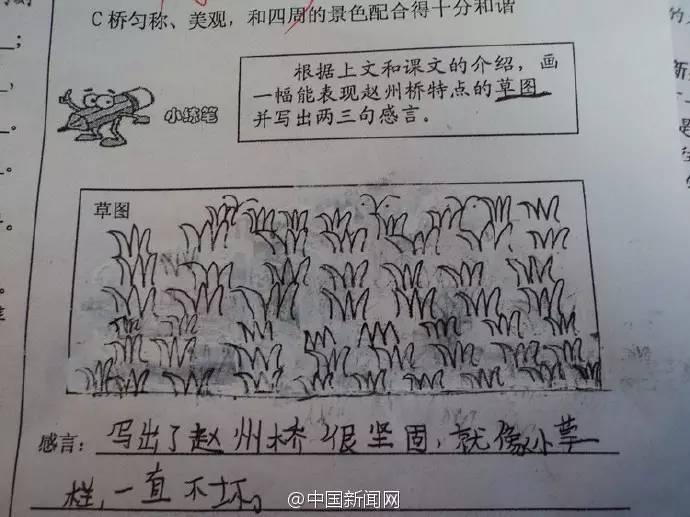 C 桥匀称、美观，和四周的景色配合得十分和谐
小练笔
根据上文和课文的介绍，画
一幅能表现赵州桥特点的草图，
并写出两三句感言。
草图
感言：写出了赵州桥很坚固，就像小草一
样，一直不坏。
@中国新闻网